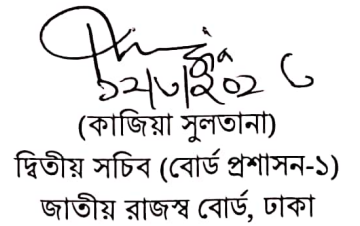 (কাজিয়া সুলতানা)
দ্বিতীয় সচিব (বোর্ড প্রশাসন-১)
জাতীয় রাজস্ব বোর্ড, ঢাকা